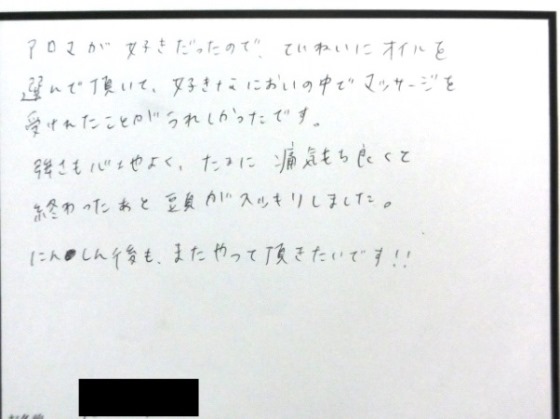 アロマが好きだったので、ていねいにオイルを
選んで頂いて、好きなにおいの中でマッサージを
受けれたことがうれしかったです。
強さも心地よく、たまに痛気もち良くて
終わったあと頭がスッキリしました。
にんしん後も、またやって頂きたいです!!